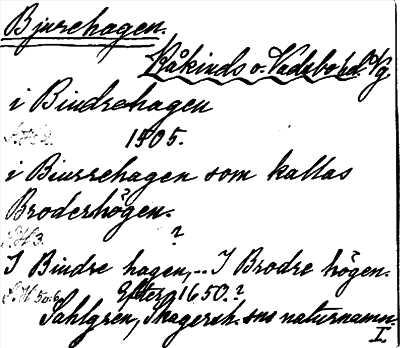 Bjurehagen.
Kåkinds o. Vadsbo hd. Vg
i Bindrehagen
1505.
i Biurrehagen som kallas
Broderhögen.
?
I Bindre hagen,.. I Brodre högen.
Efter 1650.?
Sahlgren, Skagersh. sns naturnamn.
I.